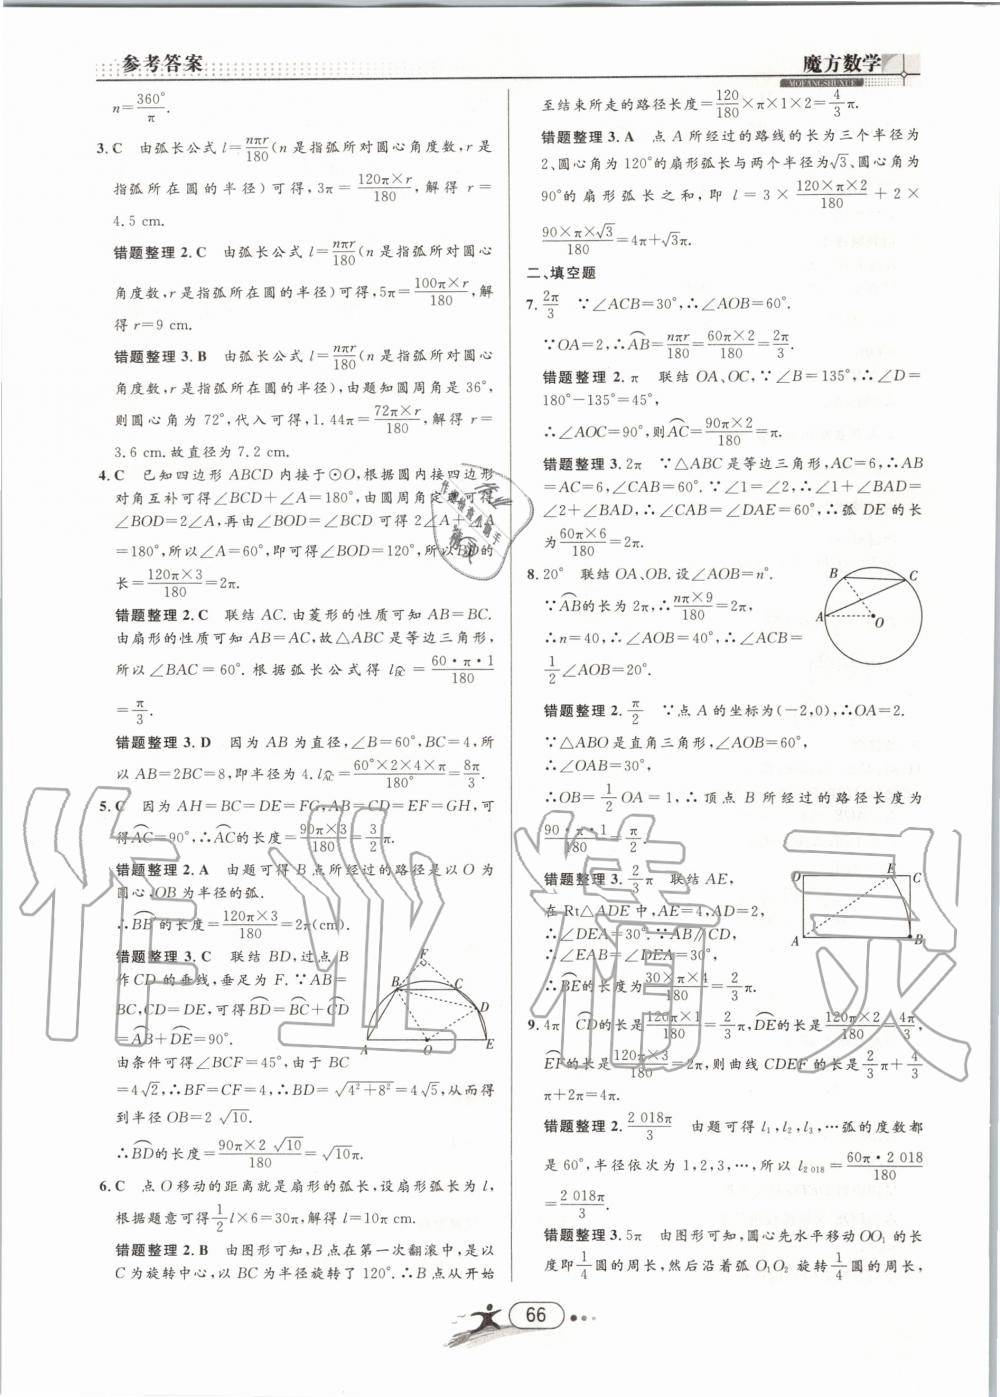 参考答案
魔方数学
MOFANGSHUXUE
n=360°/π.
3. C 由弧长公式 l=nπr/180(n 是指弧所对圆心角度数,r 是
指弧所在圆的半径)可得,3π=120π×r/180,解得 r=
4.5 cm.
错题整理 2. C 由弧长公式 l=nπr/180(n 是指弧所对圆心
角度数,r 是指弧所在圆的半径)可得,5π=100π×r/180,解
得 r=9 cm.
错题整理 3. B 由弧长公式 l=nπr/180(n 是指弧所对圆心
角度数,r 是指弧所在圆的半径),由题知圆周角是 36°,
则圆心角为 72°,代入可得,1.44π=72π×r/180,解得 r=
3.6 cm.故直径为 7.2 cm.
4. C 已知四边形 ABCD 内接于⊙O,根据圆内接四边形
对角互补可得∠BCD+∠A=180°,由圆周角定理可得
∠BOD=2∠A,再由∠BOD=∠BCD 可得 2∠A+∠A
=180°,所以∠A=60°,即可得∠BOD=120°,所以BD的
长=120π×3/180=2π.
错题整理 2. C 联结 AC.由菱形的性质可知 AB=BC.
由扇形的性质可知 AB=AC,故△ABC 是等边三角形,
所以∠BAC=60°.根据弧长公式得 l⌒BC=60·π·1/180
=π/3.
错题整理 3. D 因为 AB 为直径,∠B=60°,BC=4,所
以 AB=2BC=8,即半径为 4.l⌒AC=60°×2×4×π/180°=8π/3.
5. C 因为 AH=BC=DE=FG,AB=CD=EF=GH,可
得⌒AC=90°,∴⌒AC的长度=90π×3/180=3/2π.
错题整理 2. A 由题可得 B 点所经过的路径是以 O 为
圆心,OB 为半径的弧.
∴⌒BB的长度=120π×3/180=2π(cm)
错题整理 3. C 联结 BD,过点 B
作 CD 的垂线,垂足为 F.∵AB=
BC,CD=DE,可得⌒BD=⌒BC+⌒CD
=⌒AB+⌒DE=90°.
由条件可得∠BCF=45°,由于 BC
=4√2,∴BF=CF=4,∴BD=√4²+8²=4√5,从而得
到半径 OB=2√10.
∴⌒BD的长度=90π×2√10/180=√10π.
6. C 点 O 移动的距离就是扇形的弧长,设扇形弧长为 l,
根据题意可得1/2 l×6=30π,解得 l=10π cm.
错题整理 2. B 由图形可知,B 点在第一次翻滚中,是以
C 为旋转中心,以 BC 为半径旋转了 120°.∴B 点从开始
F
B
C
D
A
O
E
至结束所走的路径长度=120/180×π×1×2=4/3π.
错题整理 3. A 点 A 所经过的路线的长为三个半径为
2、圆心角为 120°的扇形弧长与两个半径为√3、圆心角为
90°的扇形弧长之和,即 l=3×120×π×2/180+2×
90×π×√3/180=4π+√3π.
二、填空题
7. 2π/3 ∵∠ACB=30°,∴∠AOB=60°.
∵OA=2,∴⌒AB=nπr/180=60π×2/180=2π/3.
错题整理 2. π 联结 OA、OC,∵∠B=135°,∴∠D=
180°-135°=45°,
∴∠AOC=90°,则⌒AC=90π×2/180=π.
错题整理 3. 2π ∵△ABC 是等边三角形,AC=6,∴AB
=AC=6,∠CAB=60°.∵∠1=∠2,∴∠1+∠BAD=
∠2+∠BAD,∴∠CAB=∠DAE=60°,∴弧 DE 的长
为60π×6/180=2π.
8. 20° 联结 OA、OB.设∠AOB=n°.
∵⌒AB的长为 2π,∴nπ×9/180=2π,
∴n=40,∴∠AOB=40°,∴∠ACB=
1/2∠AOB=20°.
B
C
A
O
错题整理 2. π/2 ∵点 A 的坐标为(-2,0),∴OA=2.
∵△ABO 是直角三角形,∠AOB=60°,
∴∠OAB=30°,
∴OB=1/2 OA=1,∴顶点 B 所经过的路径长度为
90·π·1/180=π/2.
错题整理 3. 2/3π 联结 AE,
在 Rt△ADE 中,AE=4,AD=2,
∴∠DEA=30°.∵AB∥CD,
∴∠EAB=∠DEA=30°,
∴⌒BE的长度为30×π×4/180=2/3π.
D
E
C
A
B
9. 4π ⌒CD的长是120π×1/180=2π/3,⌒DE的长是120π×2/180=4π/3,
⌒EF的长是120π×3/180=2π,则曲线 CDEF 的长是2/3π+4/3
π+2π=4π.
错题整理 2. 2 018π/3 由题可得 l₁,l₂,l₃,…弧的度数都
是 60°,半径依次为 1,2,3,…,所以 l₂ ₀₁₈=60π·2 018/180
=2 018π/3.
错题整理 3. 5π 由图形可知,圆心先水平移动 OO₁ 的长
度即1/4圆的周长,然后沿着弧 O₁O₂ 旋转1/4圆的周长,
66
作业精灵